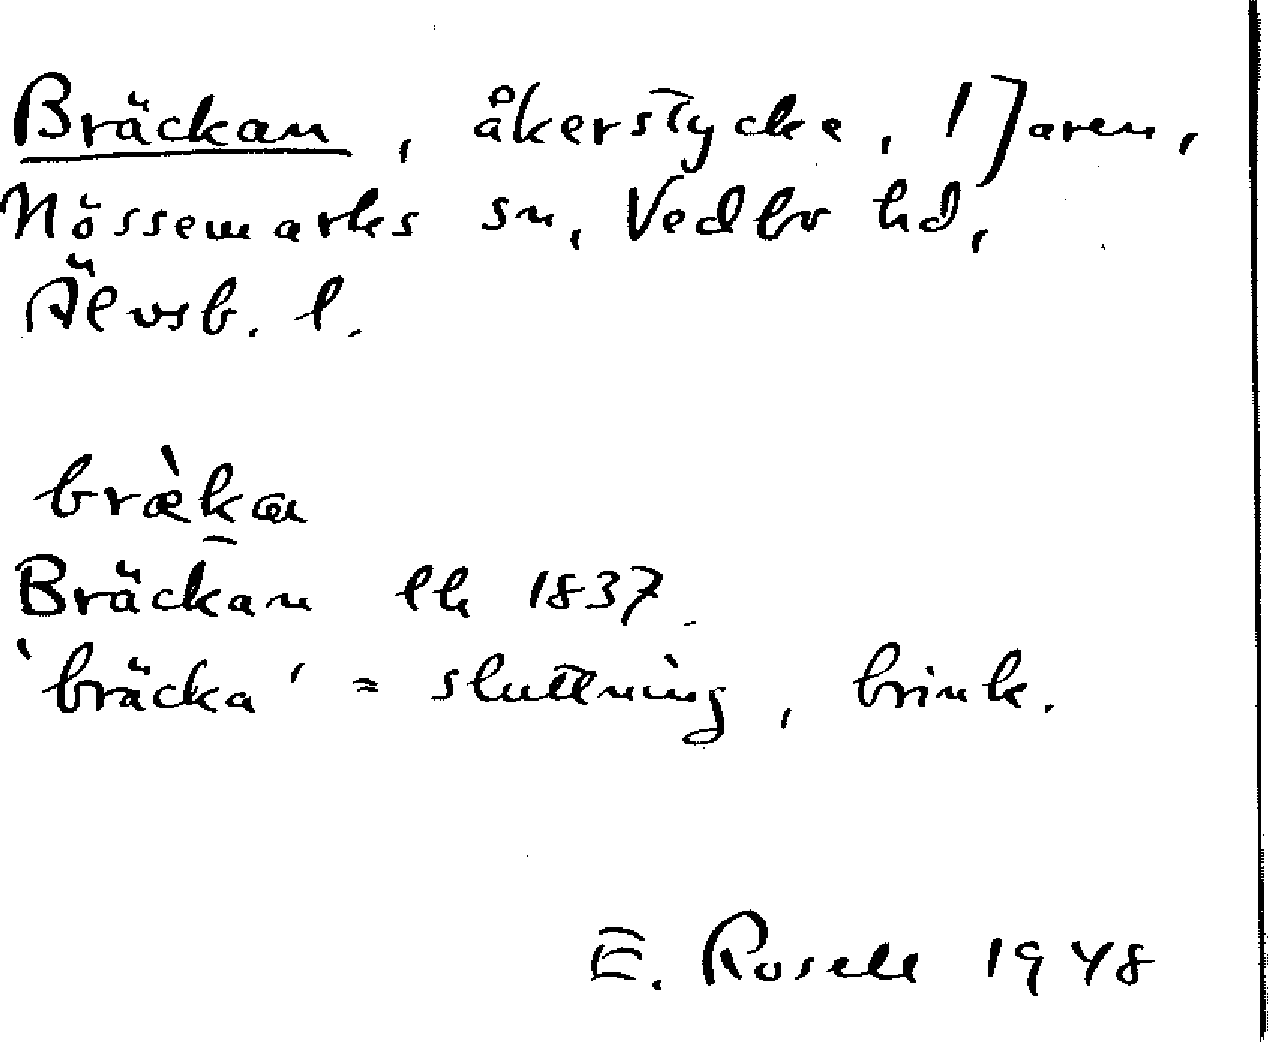 Bräckan, åkerstycke, 1 Jaren,
Nössemarks sn, Vedbo hd,
Älvsb. l.
bræ̀kan
Bräckan lh 1837.
'bräcka' = sluttning, brink.
E. Rosell 1948